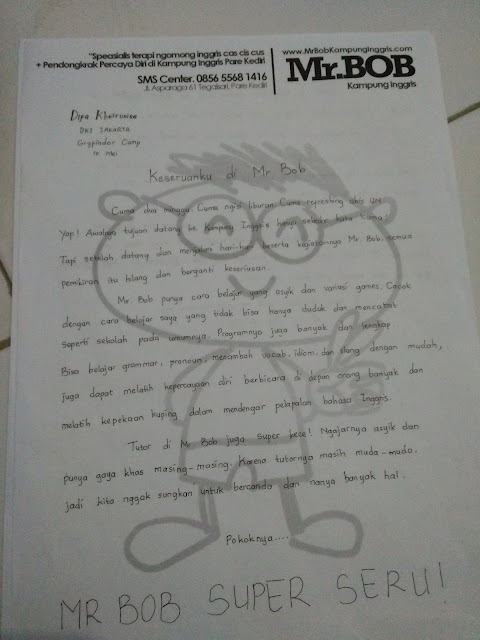 "Speasialis terapi ngomong inggris cas cis cus
+ Pendongkrak Percaya Diri di Kampung Inggris Pare Kediri
SMS Center. 0856 5568 1416
Jl. Asparaga 61 Tegalsari, Pare Kediri
www.MrBobKampungInggris.com
Mr.BOB
Kampung Inggris
Dipa Khairunisa
DKI JAKARTA
Gryfindor Camp
Keseruanku di Mr Bob
Cuma dua minggu. Cuma ngisi liburan. Cuma refreshing abis UN.
Yap! Awalnya tujuan datang ke Kampung Inggris hanya sekedar kata Cuma!
Tapi setelah datang dan menjalani hari-hari beserta kegiatannya Mr Bob, semua
pemikiran itu hilang dan berganti keseriusan.
Mr. Bob punya cara belajar yang asyik dan variasi games. Cocok
dengan cara belajar saya yang tidak bisa hanya duduk dan mencatat
seperti sekolah pada umumnya. Programnya juga banyak dan lengkap
Bisa belajar grammar, pronoun, menambah vocab, idiom, dan slang dengan mudah,
juga dapat melatih kepercayaan diri berbicara di depan orang banyak dan
melatih kepekaan kuping dalam mendengar pelapalan bahasa Inggris.
Tutor di Mr Bob juga super kece! Ngajarnya asyik dan
punya gaya khas masing-masing. Karena tutornya masih muda-muda.
jadi kita nggak sungkan untuk bercanda dan nanya banyak hal.
Pokoknya....
MR BOB SUPER SERU!